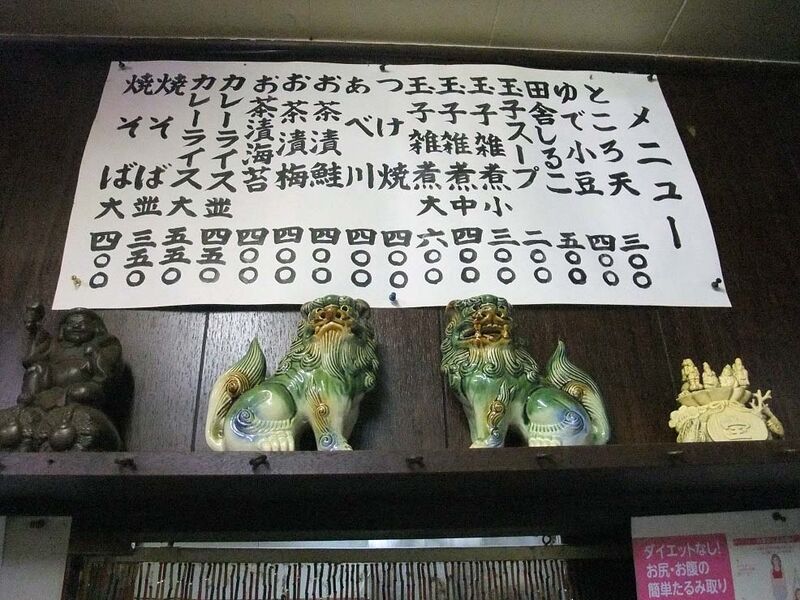 メニュー
ところ天 三〇〇
ゆで小豆 四〇〇
田舎しるこ 五〇〇
玉子スープ 二〇〇
玉子雑煮小 三〇〇
玉子雑煮中 四〇〇
玉子雑煮大 六〇〇
つけ焼 四〇〇
あべ川 四〇〇
お茶漬鮭 四〇〇
お茶漬梅 四〇〇
お茶漬海苔 四〇〇
カレーライス並 四五〇
カレーライス大 五五〇
焼そば並 三五〇
焼そば大 四〇〇
ダイエットなし!
お尻・お腹の
簡単たるみ取り